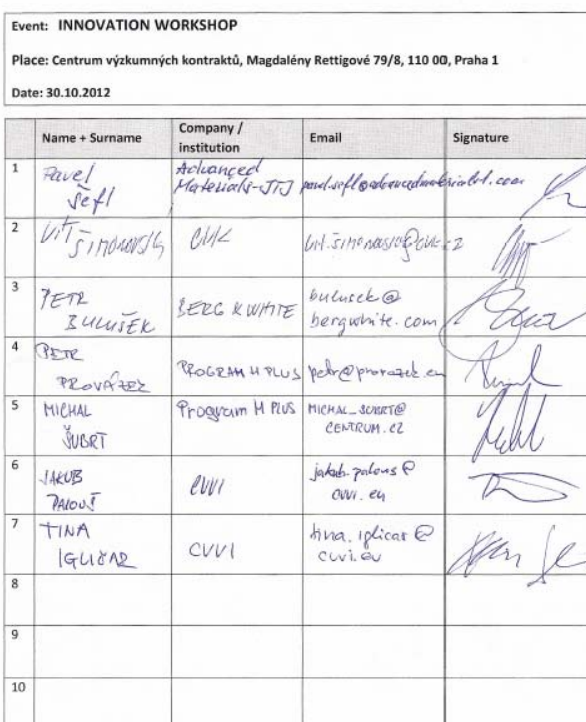 Event: INNOVATION WORKSHOP
Place: Centrum výzkumných kontraktů, Magdalény Rettigové 79/8, 110 00, Praha 1
Date: 30.10.2012
Name + Surname Company / institution Email Signature
1 Pavel Šefl Advanced Materials-JTJ
2 Vít ŠIMONOVSKÝ
3 PETR BULUŠEK BERG & WHITE bulusek@bergwhite.com
4 PETR PROVAZEK PROGRAM H PLUS
5 MICHAL ŠUBRT Program H PLUS MICHAL_SUBRT@CENTRUM.CZ
6 JAKUB PALOUŠ CVVI jakub.palous@cvvi.eu
7 TINA IGLIČAR CVVI tina.iglicar@cvvi.eu
8
9
10